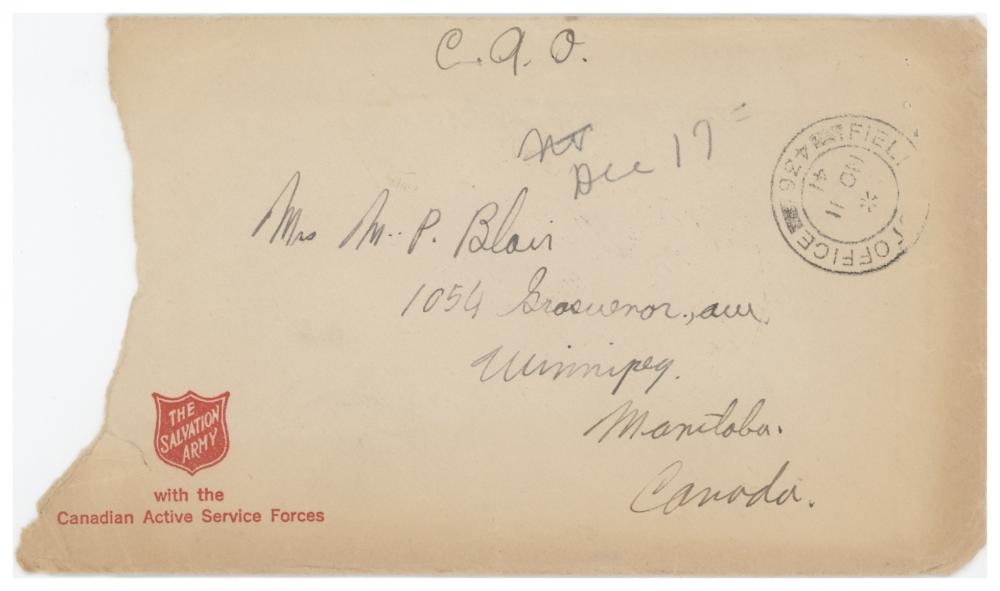 C.A.O.
Dec 17
FIELD POST OFFICE
436
NO 11
41
Mrs M. P. Blair
1054 Grosvenor, ave
Winnipeg.
Manitoba.
Canada.
THE
SALVATION
ARMY
with the
Canadian Active Service Forces